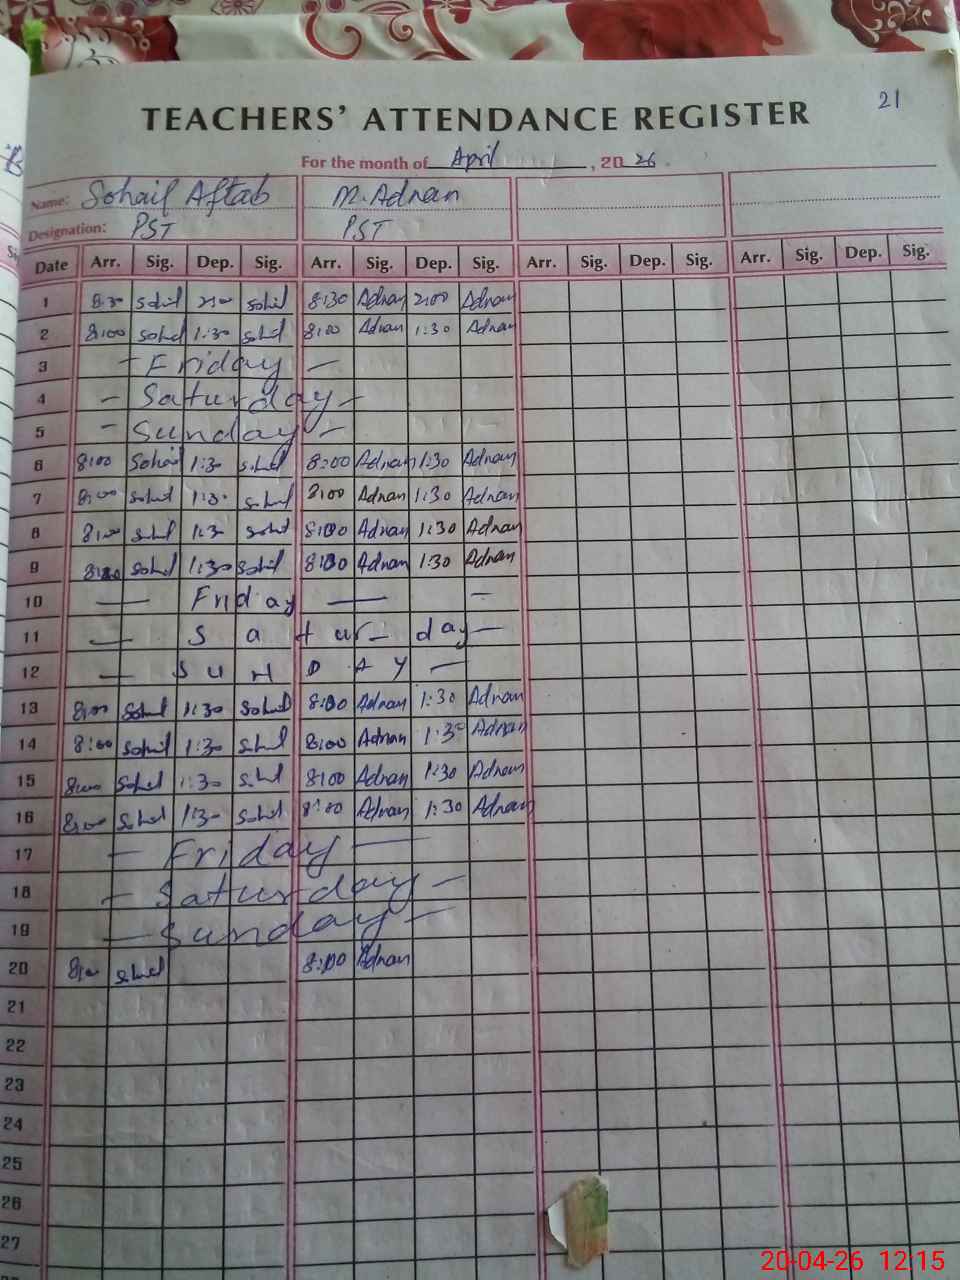 21
TEACHERS' ATTENDANCE REGISTER
For the month of April, 2026.
Name: Sohail Aftab M. Adnan
Designation: PST PST
Date Arr. Sig. Dep. Sig. Arr. Sig. Dep. Sig. Arr. Sig. Dep. Sig. Arr. Sig. Dep. Sig.
1 8:30 Sohil 2:00 Sohil 8:30 Adnan 2:00 Adnan
2 8:00 Sohil 1:30 Sohil 8:00 Adnan 1:30 Adnan
3 - Friday -
4 - Saturday -
5 - Sunday -
6 8:00 Sohail 1:30 Sohil 8:00 Adnan 1:30 Adnan
7 8:00 Sohil 1:30 Sohil 8:00 Adnan 1:30 Adnan
8 8:00 Sohil 1:30 Sohil 8:00 Adnan 1:30 Adnan
9 8:00 Sohil 1:30 Sohil 8:00 Adnan 1:30 Adnan
10 — Friday — -
11 — Saturday —
12 — SUNDAY —
13 8:00 Sohil 1:30 Sohil 8:00 Adnan 1:30 Adnan
14 8:00 Sohil 1:30 Sohil 8:00 Adnan 1:30 Adnan
15 8:00 Sohil 1:30 Sohil 8:00 Adnan 1:30 Adnan
16 8:00 Sohil 1:30 Sohil 8:00 Adnan 1:30 Adnan
17 - Friday -
18 - Saturday -
19 - Sunday -
20 8:00 Sohil 8:00 Adnan
21
22
23
24
25
26
27
20-04-26 12:15